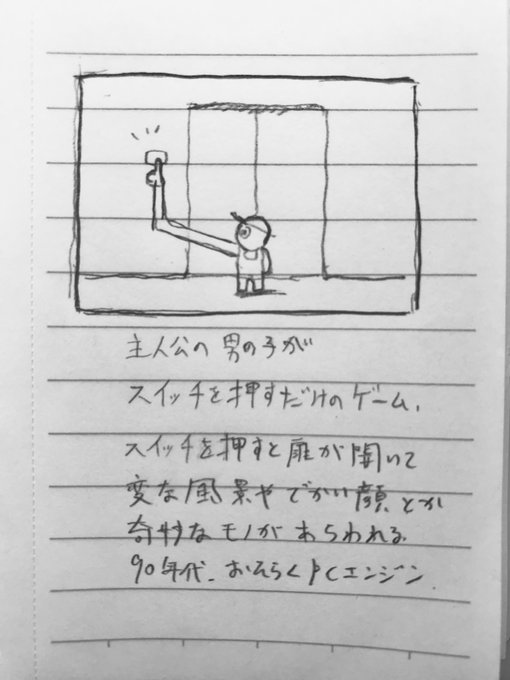 主人公の男の子が
スイッチを押すだけのゲーム.
スイッチを押すと扉が開いて
変な風景やでかい顔とか
奇妙なモノがあらわれる
90年代.おそらくPCエンジン.